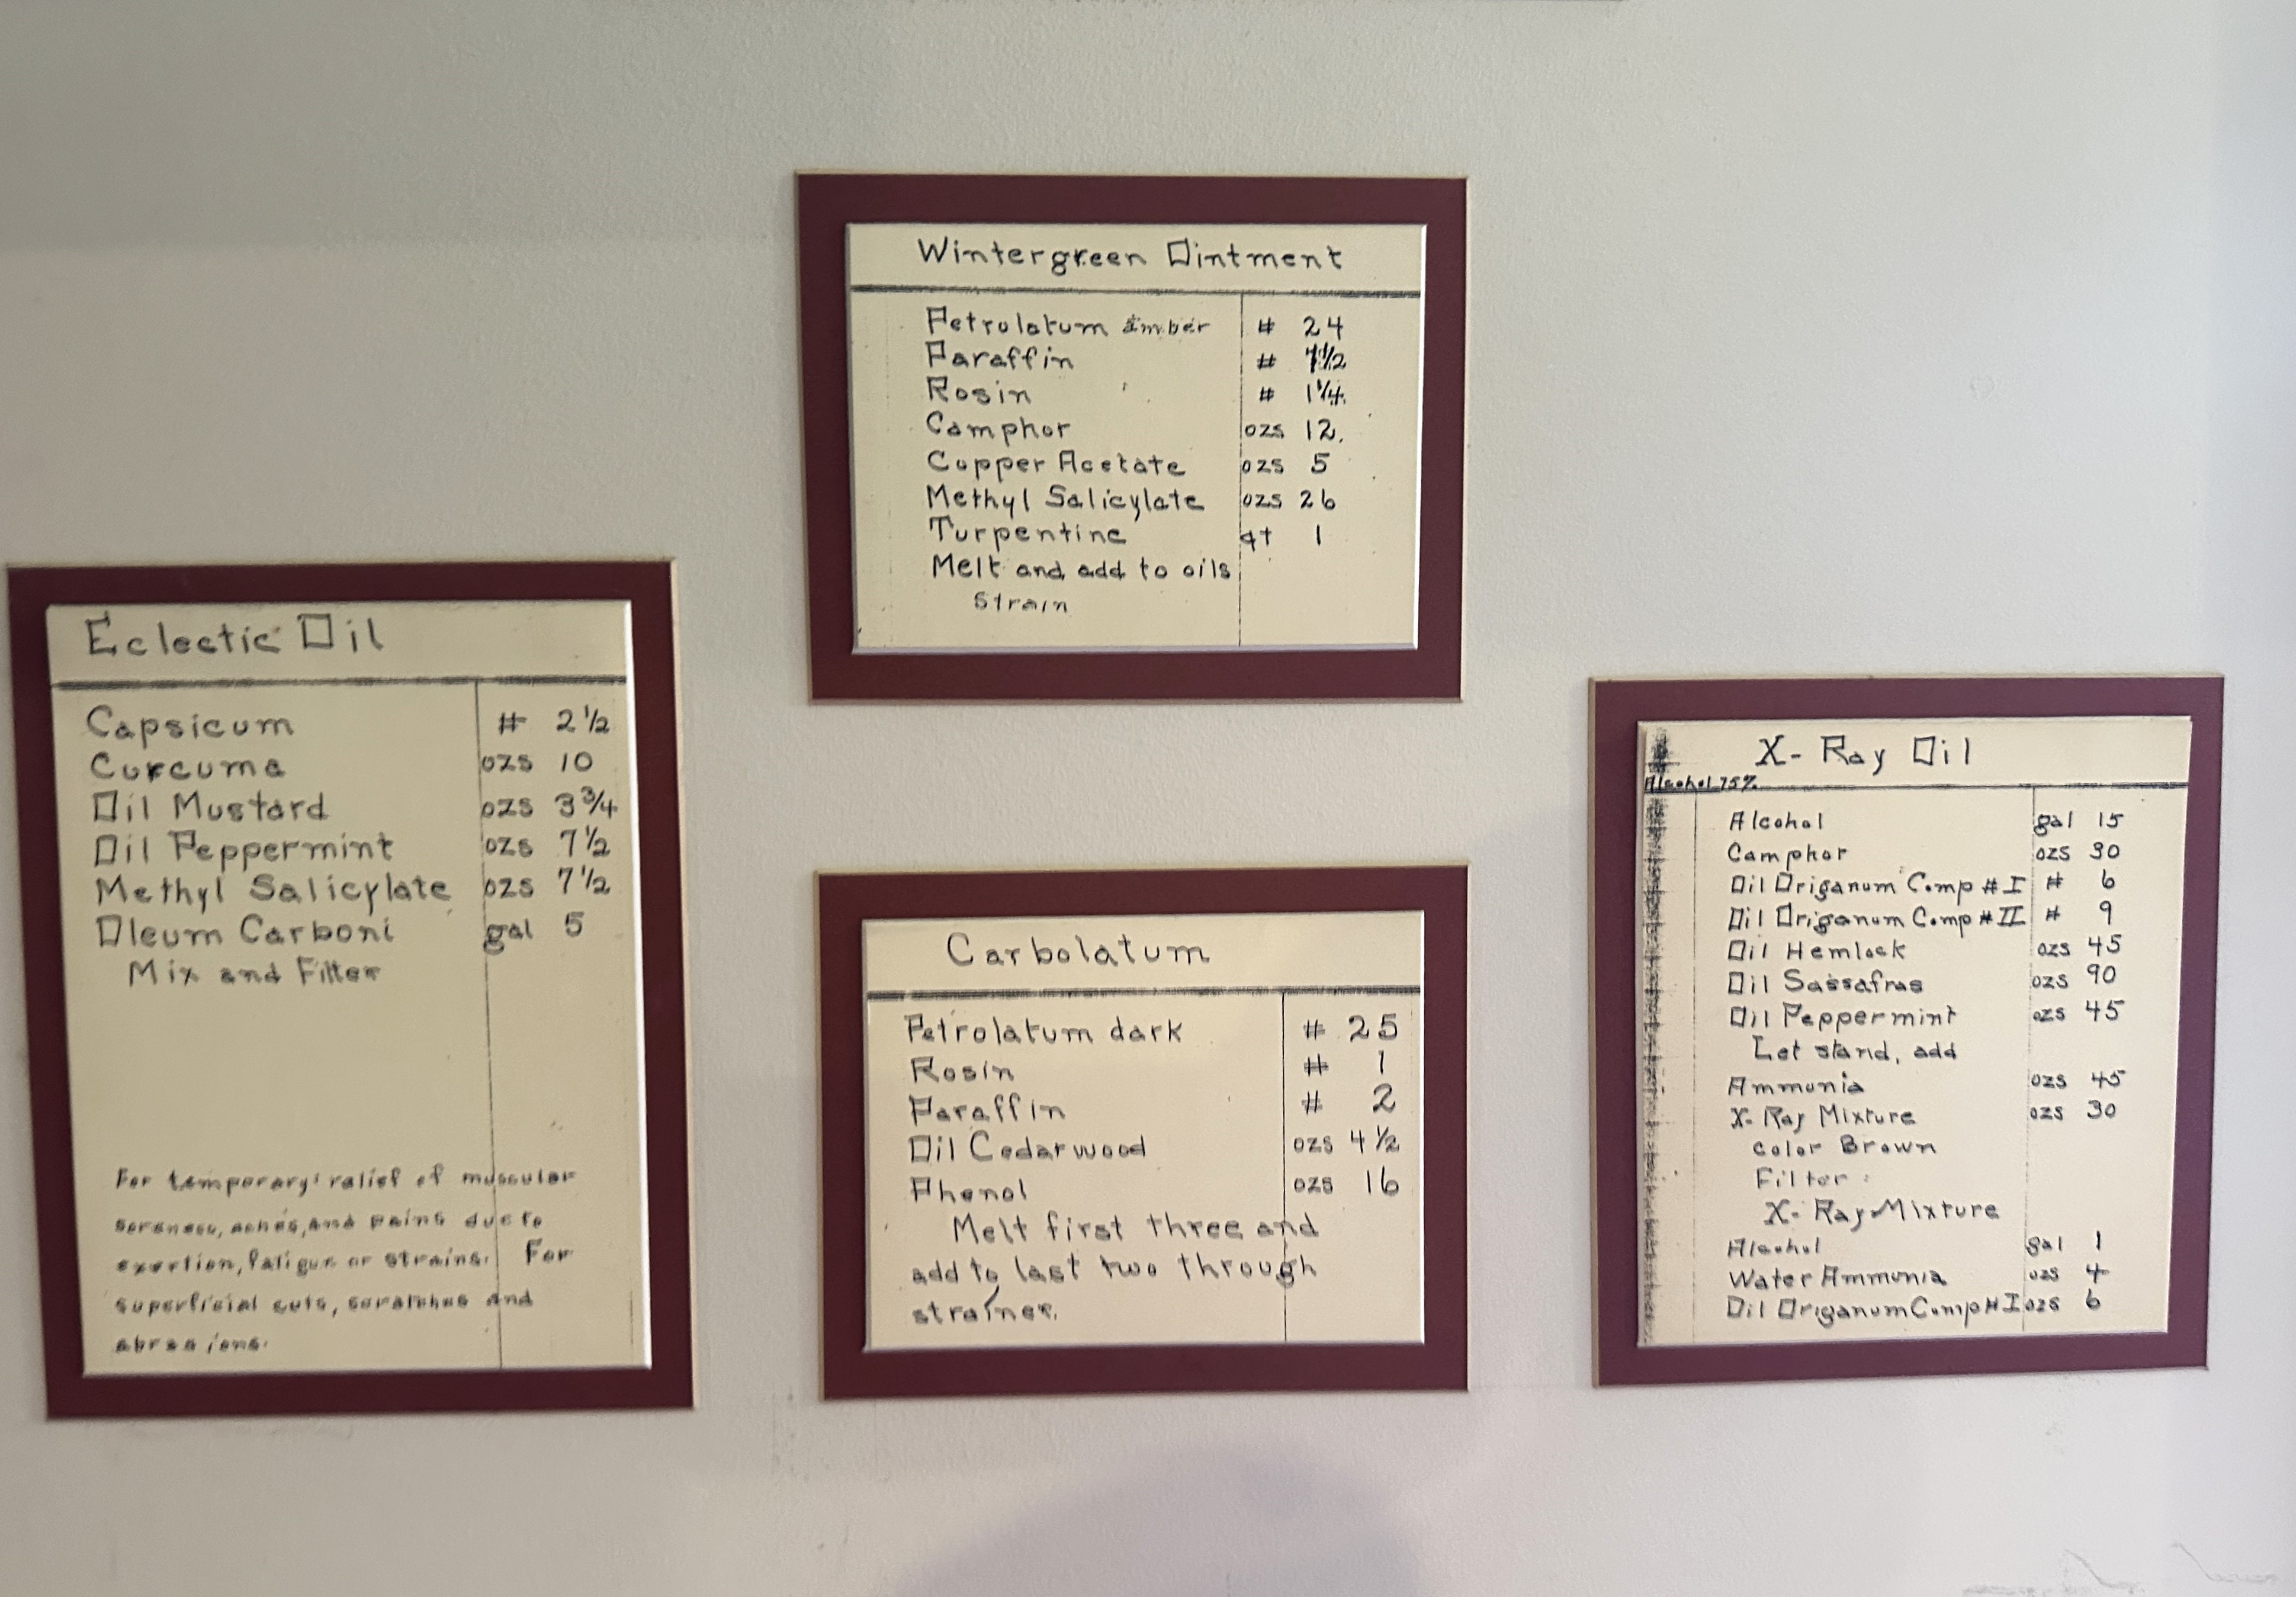 Wintergreen Ointment
Petrolatum Amber # 24
Paraffin #
Rosin # 1 1/4
Camphor ozs 12.
Copper Acetate ozs 5
Methyl Salicylate ozs 26
Turpentine qt 1
Melt and add to oils
Strain
Eclectic Oil
Capsicum # 2 1/2
Curcuma ozs 10
Oil Mustard ozs 3 3/4
Oil Peppermint ozs 7 1/2
Methyl Salicylate ozs 7 1/2
Oleum Carboni gal 5
Mix and Filter
For temporary relief of muscular
soreness, aches, and pains due to
exertion, fatigue or strains. For
superficial cuts, scratches and
abrasions.
Carbolatum
Petrolatum dark # 25
Rosin # 1
Paraffin # 2
Oil Cedarwood ozs 4 1/2
Phenol ozs 16
Melt first three and
add to last two through
strainer.
X-Ray Oil
Alcohol 75%
Alcohol gal 15
Camphor ozs 30
Oil Origanum Comp # I # 6
Oil Origanum Comp # II # 9
Oil Hemlock ozs 45
Oil Sassafras ozs 90
Oil Peppermint ozs 45
Let stand, add
Ammonia ozs 45
X-Ray Mixture ozs 30
Color Brown
Filter
X-Ray Mixture
Alcohol gal 1
Water Ammonia ozs 4
Oil Origanum Comp # I ozs 6